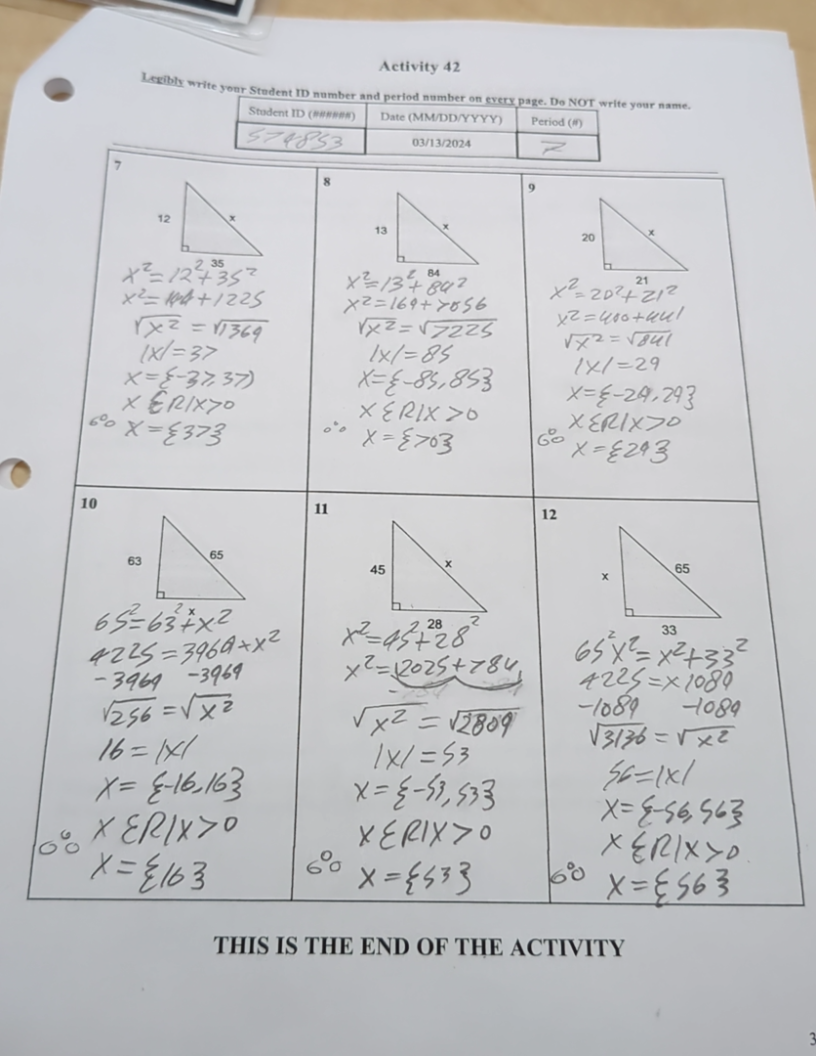 Activity 42
Legibly write your Student ID number and period number on every page. Do NOT write your name.
Student ID (######) Date (MM/DD/YYYY) Period (#)
574853 03/13/2024
7
12
x
35
x²=12²+35²
x²=144+1225
√x² = √1369
|x|=37
x={-37,37}
x ∈ℝ|x>0
∴ x={37}
8
13
x
84
x²=13²+84²
x²=169+7056
√x² = √7225
|x|=85
x={-85,85}
x ∈ℝ|x>0
∴ x={70}
9
20
x
21
x²=20²+21²
x²=400+441
√x² = √841
|x|=29
x={-29,29}
x ∈ℝ|x>0
∴ x={29}
10
63
65
x
65²=63²+x²
4225=3969+x²
-3969 -3969
√256 = √x²
16=|x|
x={-16,16}
x ∈ℝ|x>0
∴ x={16}
11
45
x
28
x²=45²+28²
x²=2025+784
√x² = √2809
|x|=53
x={-53,53}
x ∈ℝ|x>0
∴ x={53}
12
x
65
33
65²x²=x²+33²
4225=x 1089
-1089 -1089
√3136 = √x²
56=|x|
x={-56,56}
x ∈ℝ|x>0
∴ x={56}
THIS IS THE END OF THE ACTIVITY
3